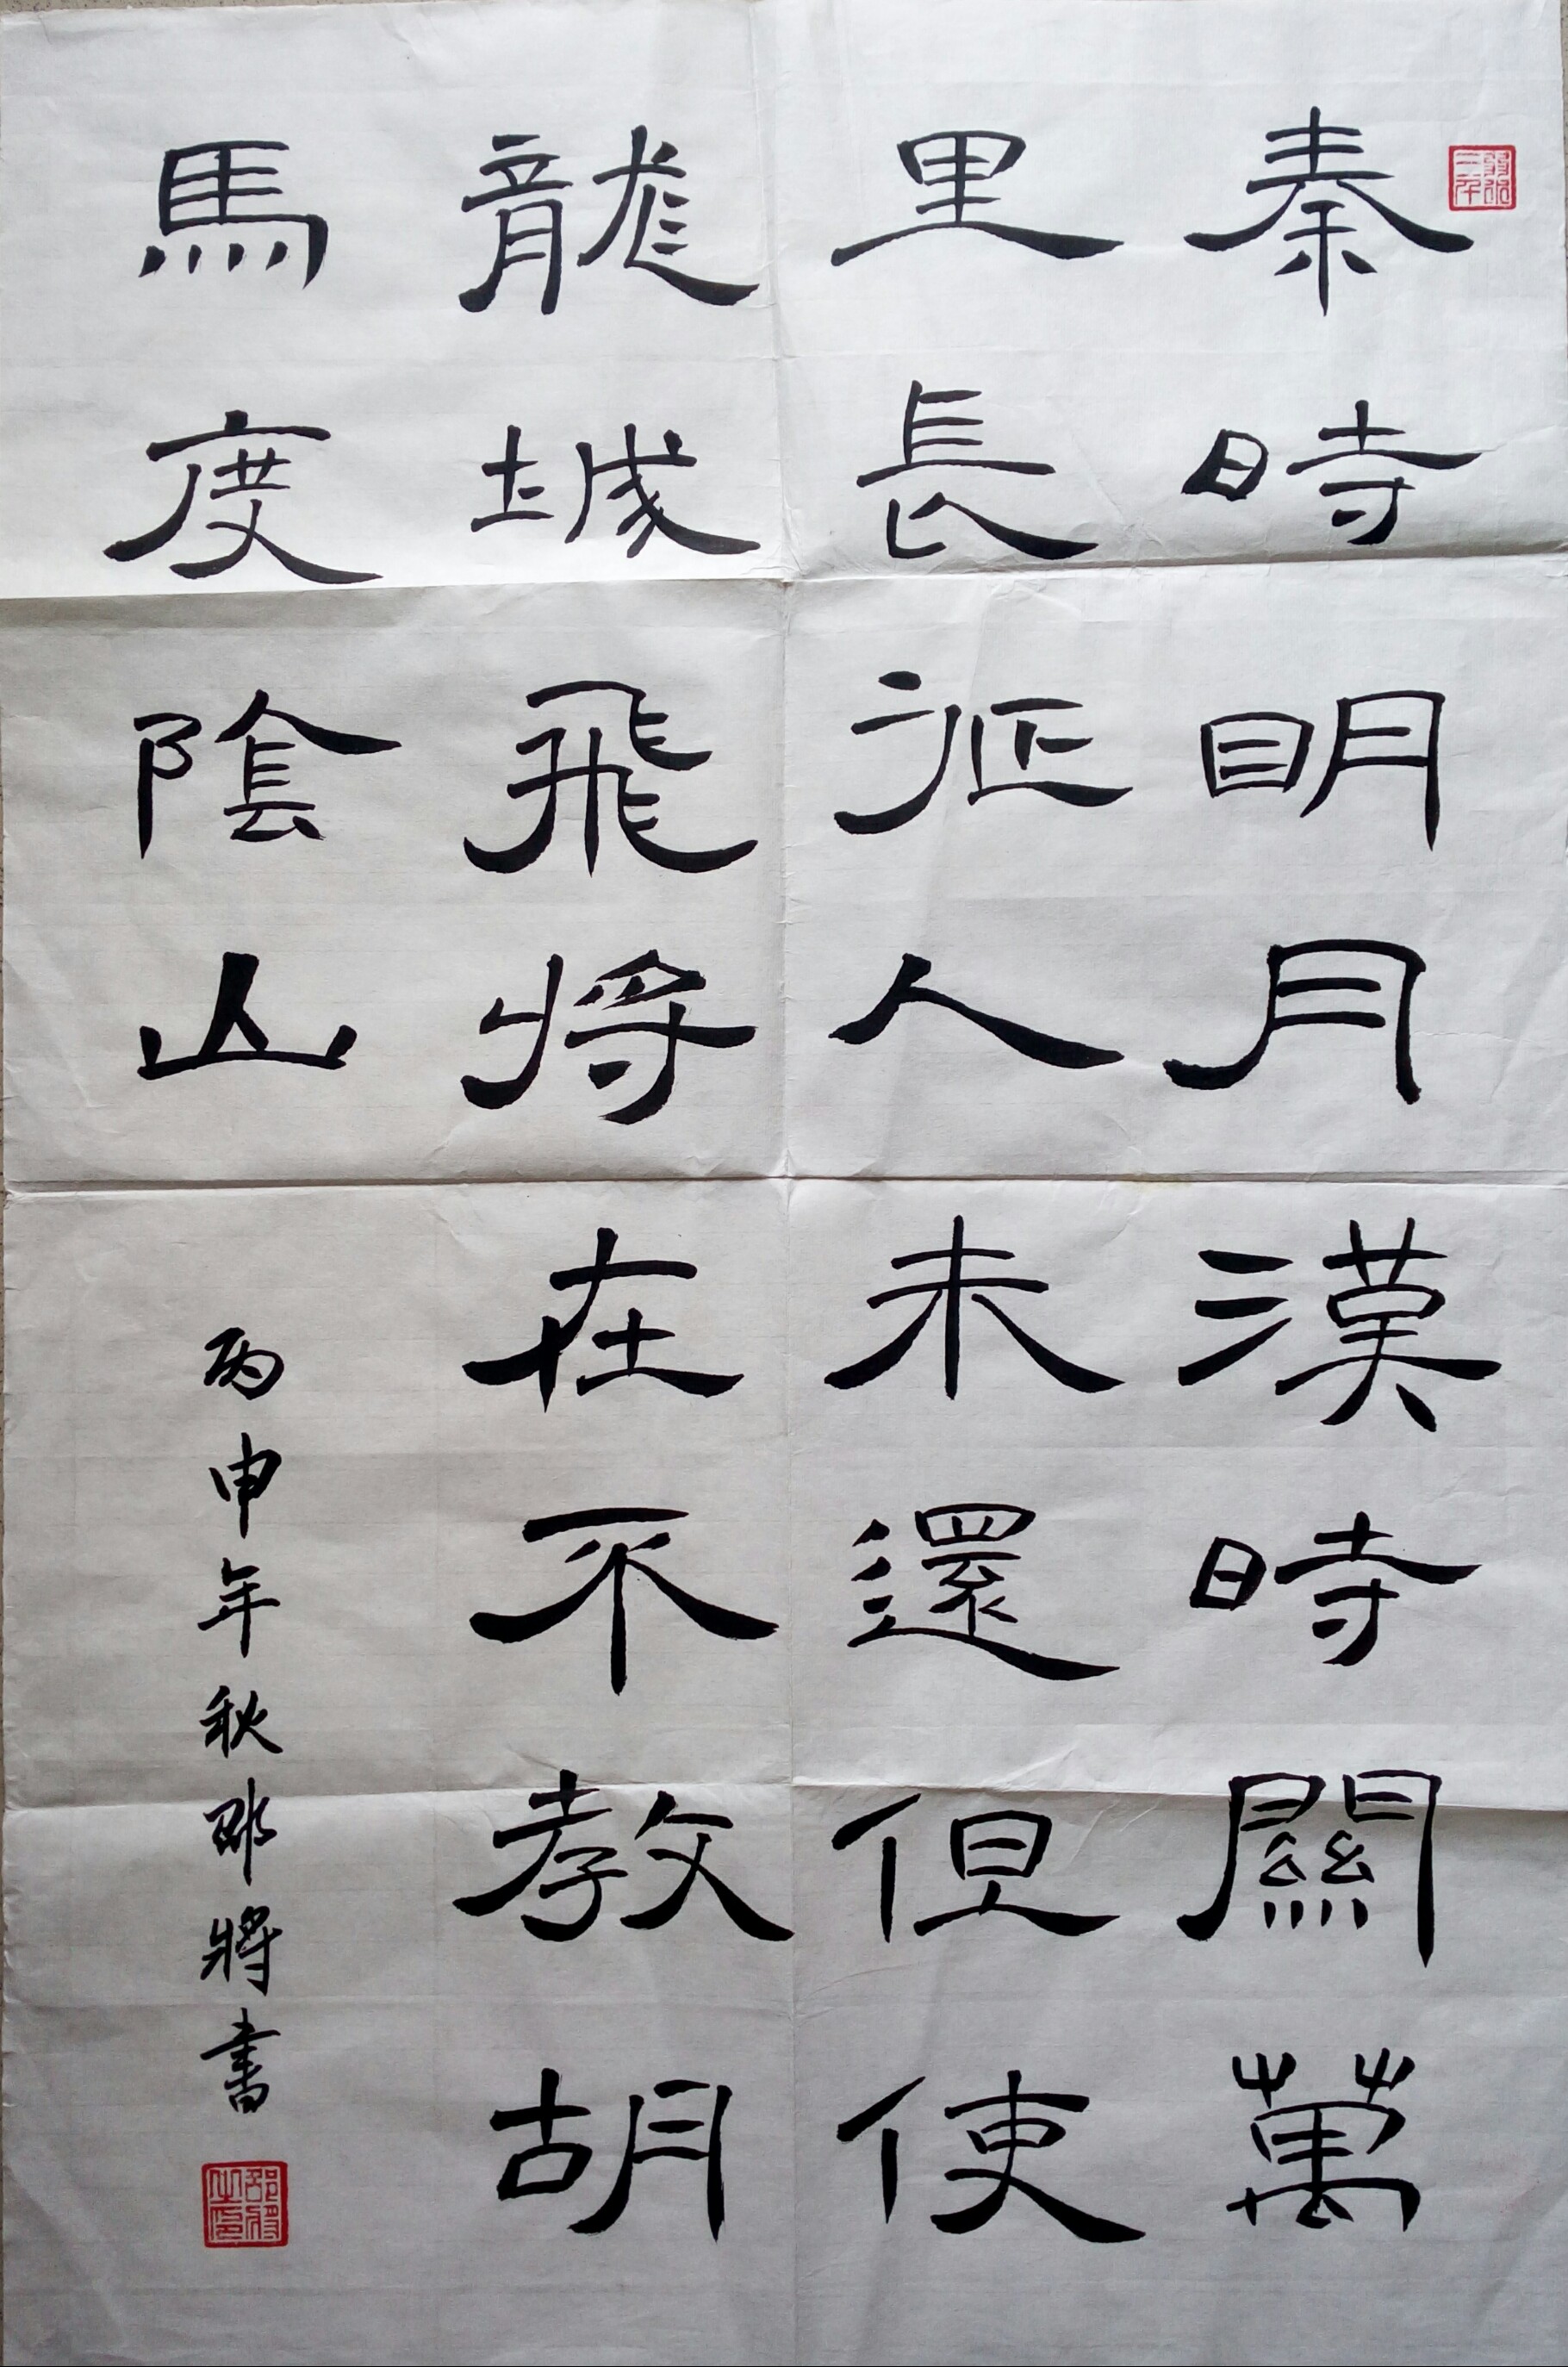 秦時明月漢時關萬
里長征人未還但使
龍城飛將在不教胡
馬度陰山
丙申年秋邵將書
邵將之印